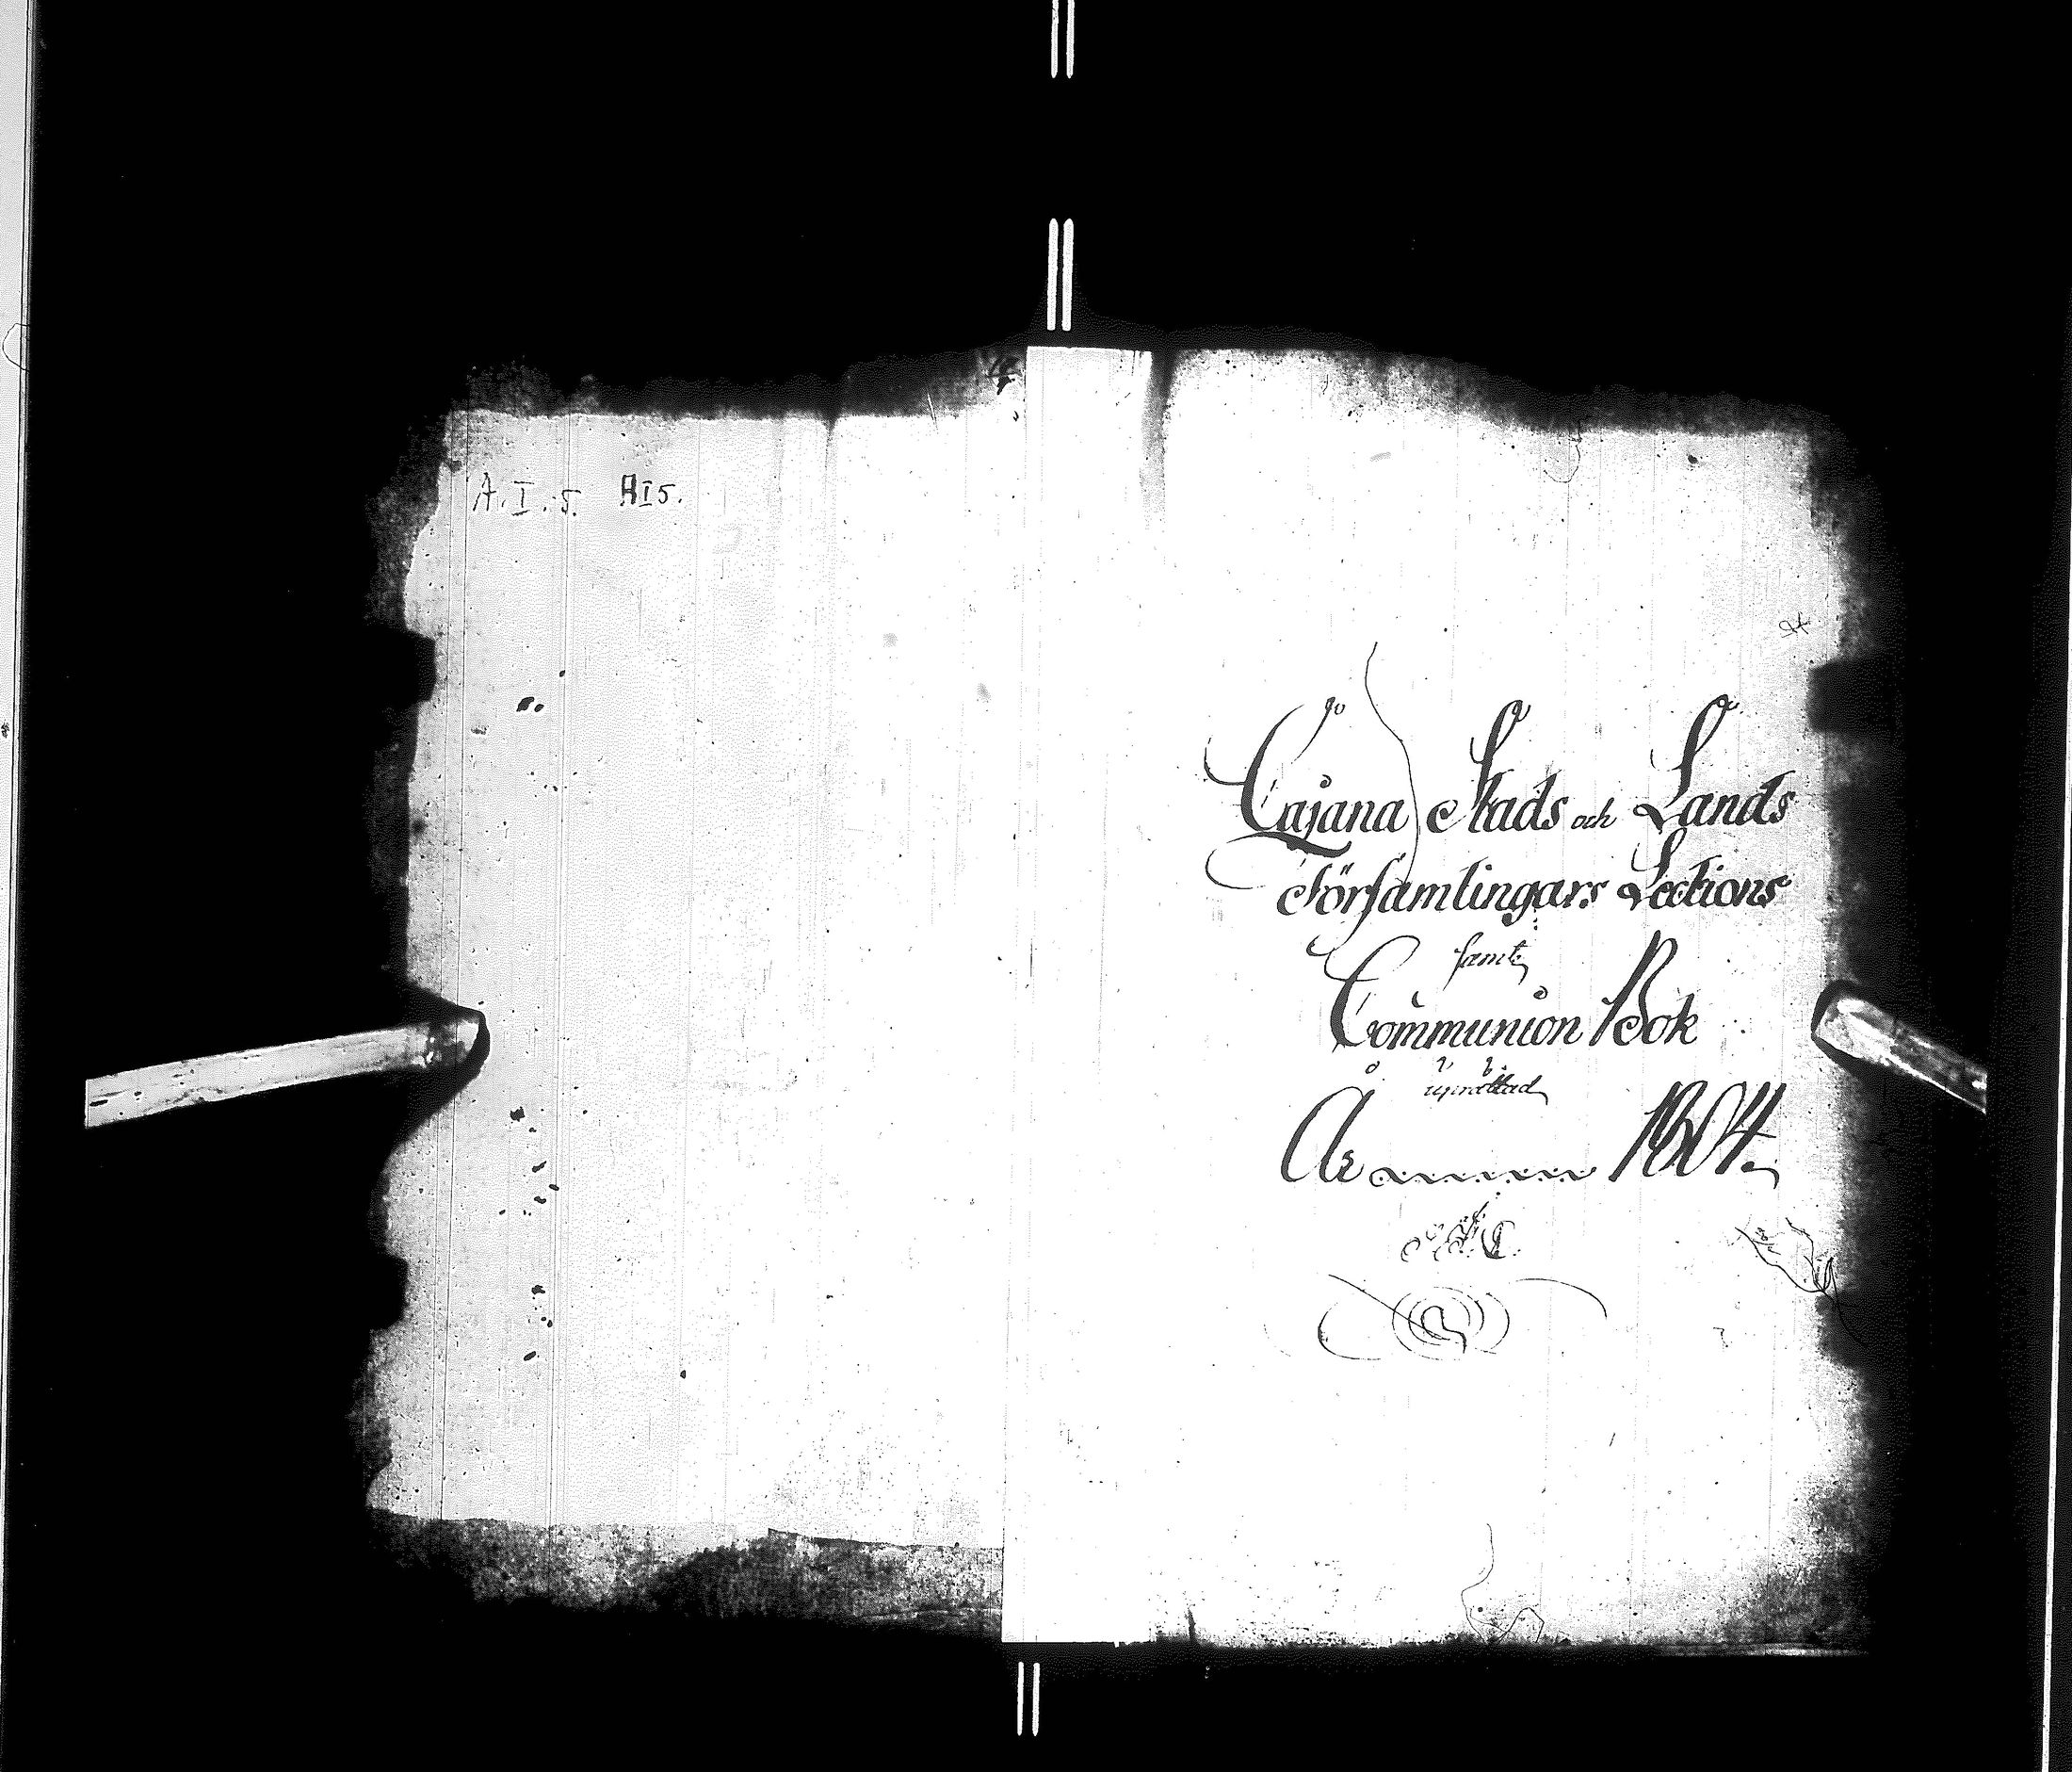 A.I.5. AI5.
Cajana Stads och Lands
Församlingars Lections
samt
Communion Bok
uprättad
År 1804.